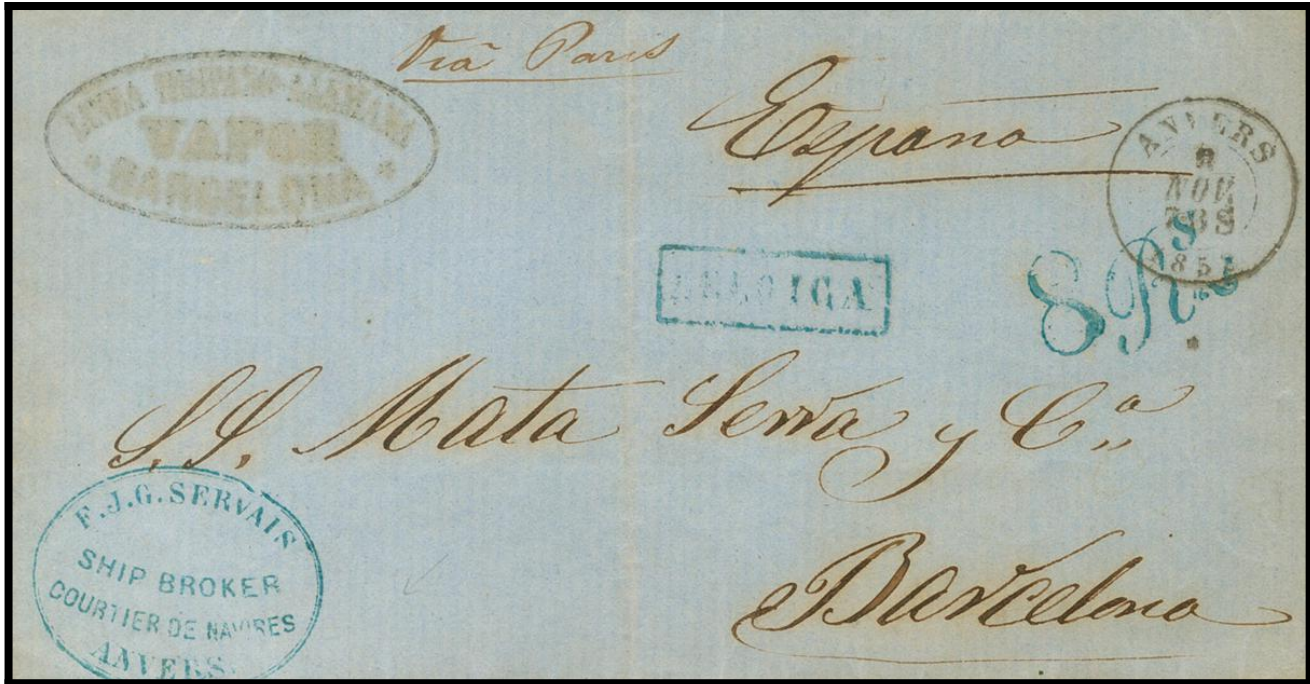 Viã Paris
España
VAPOR
* BARCELONA *
ANVERS
NOV
185
BELGICA
8 Rs
S.S. Mata Serra y Cª
Barcelona
F.J.G. SERVAIS
SHIP BROKER
COURTIER DE NAVIRES
ANVERS.